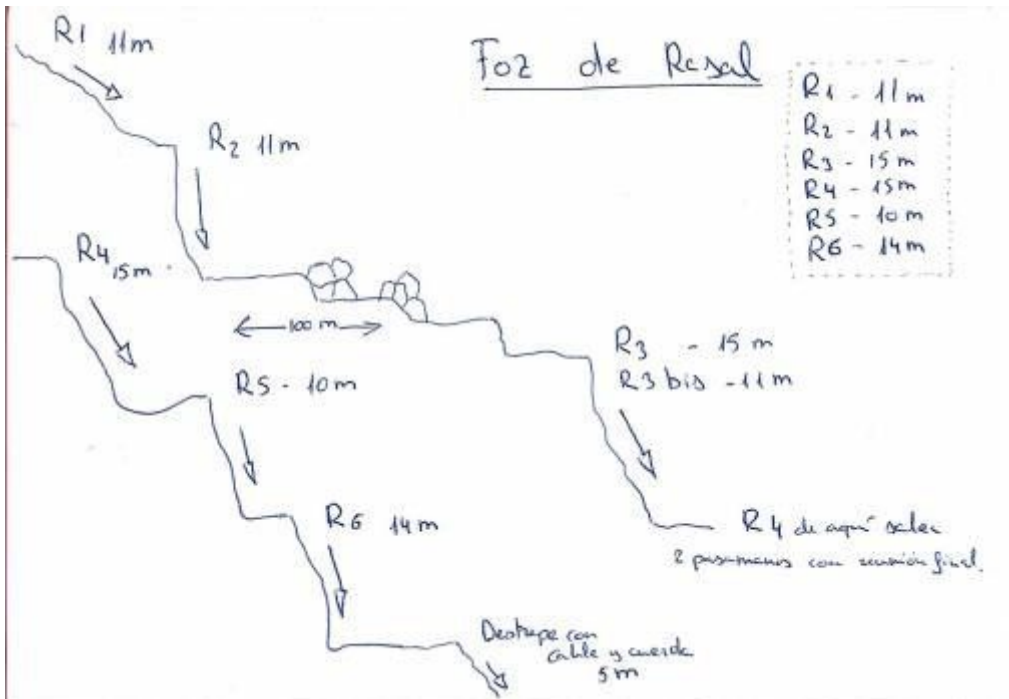 Foz de Rasal
R1 - 11m
R2 - 11m
R3 - 15m
R4 - 15m
R5 - 10m
R6 - 14m
R1 11m
R2 11m
100 m
R3 - 15m
R3 bis - 11m
R4 de aquí salen
2 pasamanos con reunión final.
R4 15m.
R5 - 10m
R6 14m
Destrepe con
cable y cuerda
5m